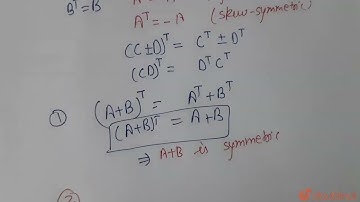 B^T = B
A^T = -A (skew-symmetric)
(C ± D)^T = C^T ± D^T
(CD)^T = D^T C^T
① (A+B)^T = A^T + B^T
(A+B)^T = A+B
⇒ A+B is symmetric